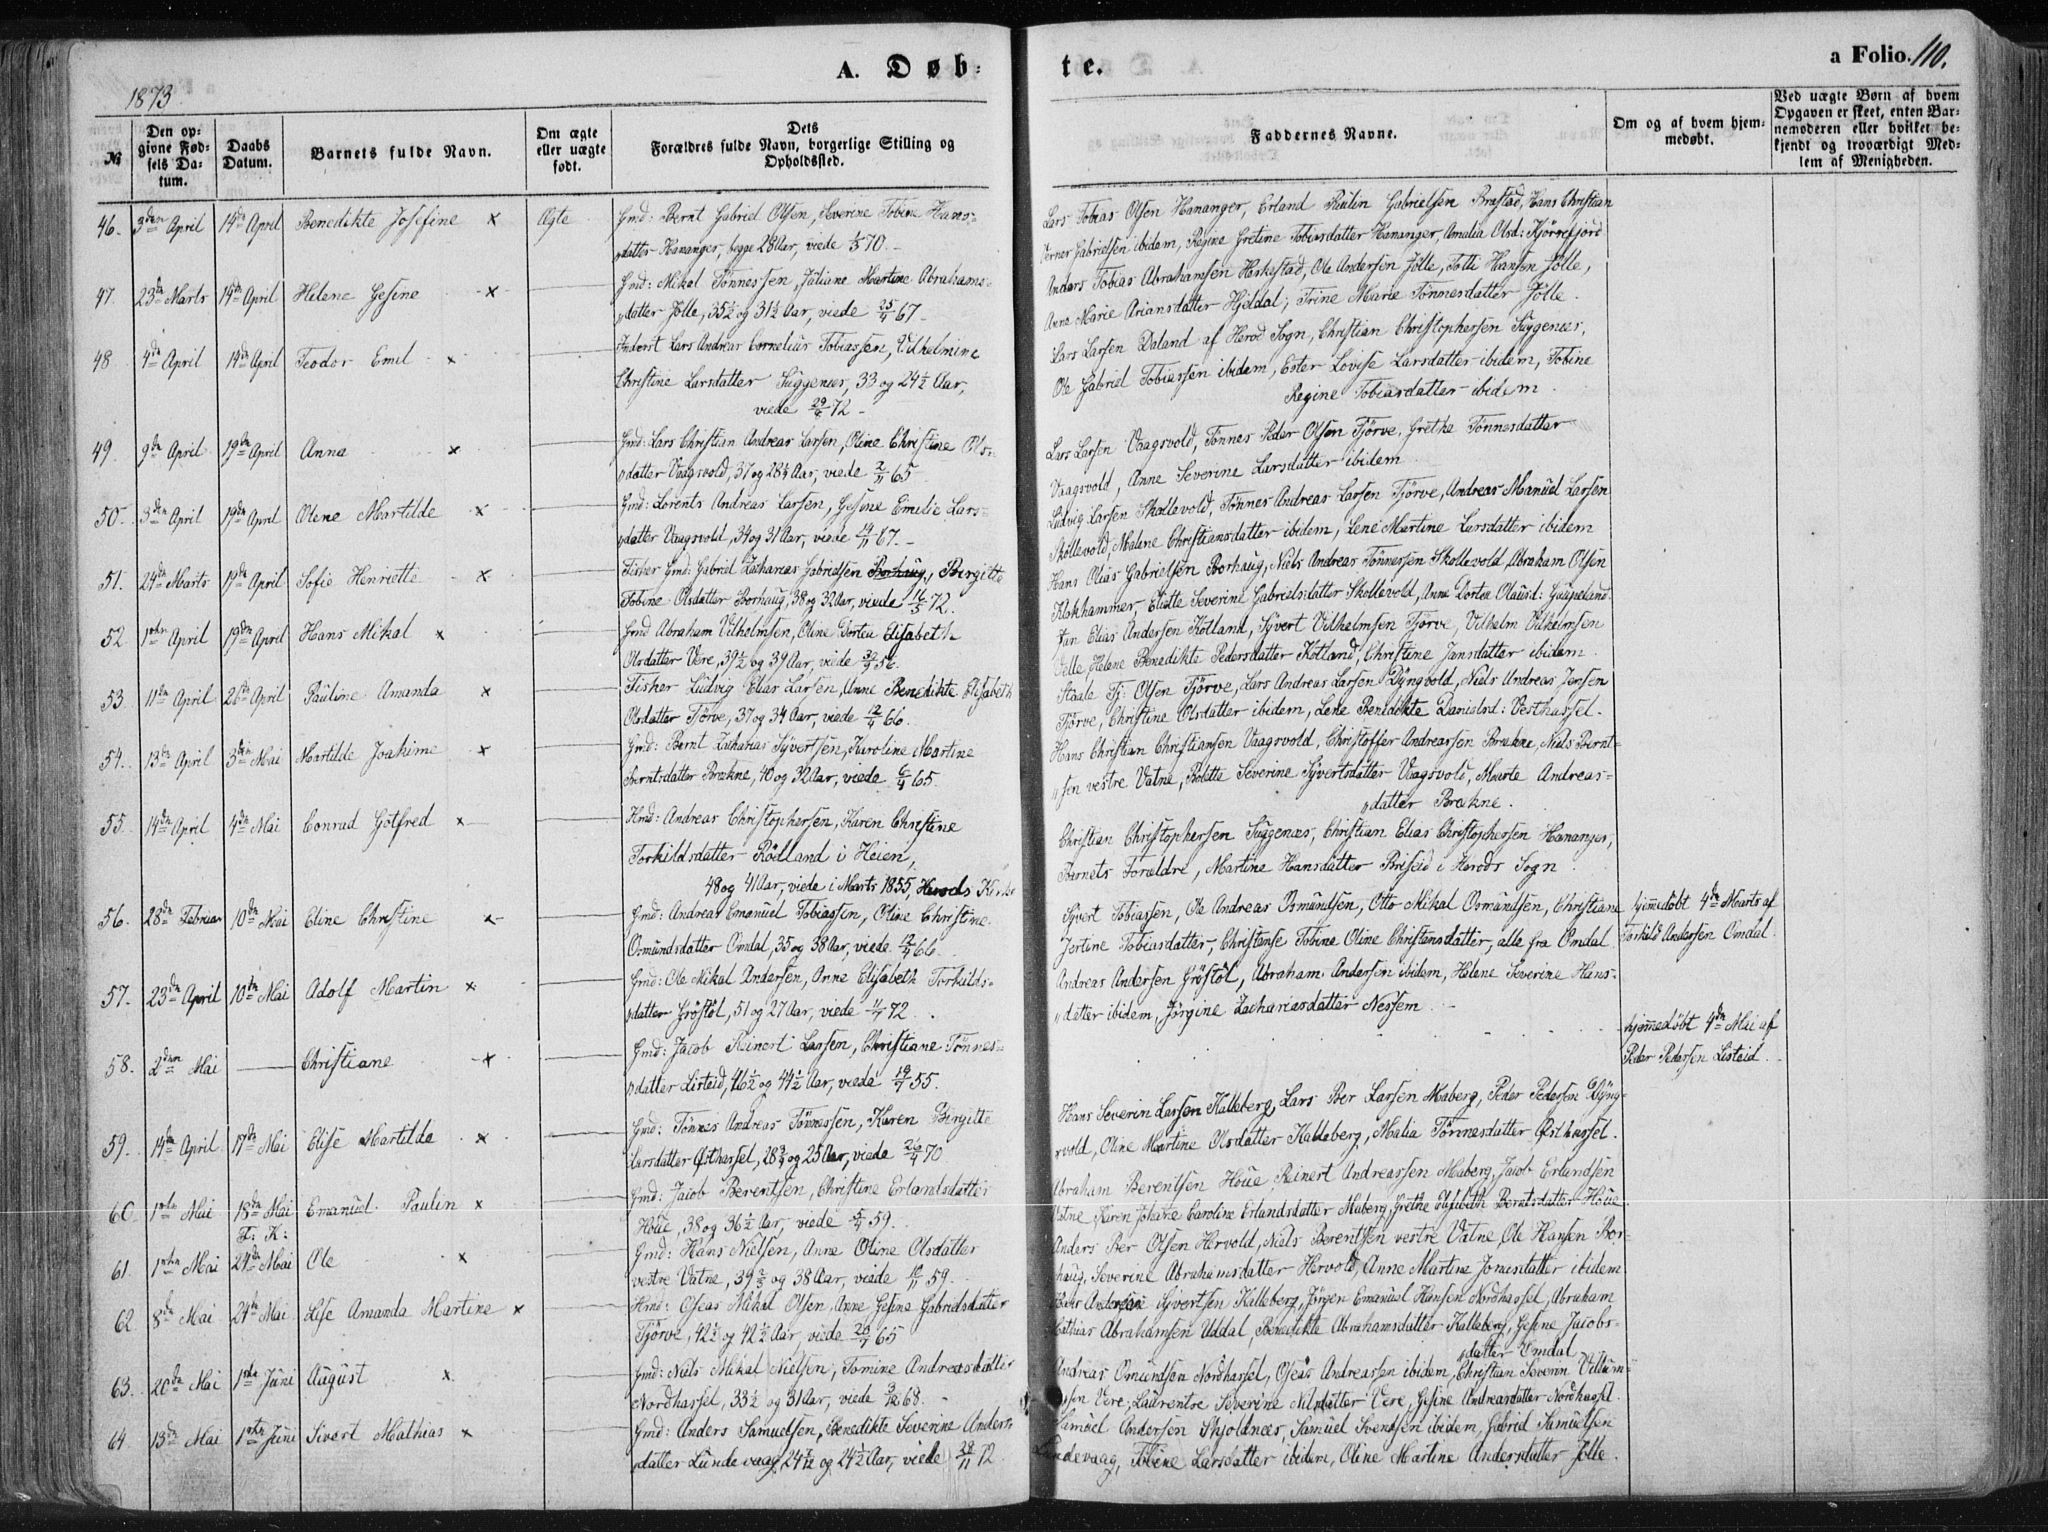 A. Døb-
te.
a Folio. 110.
1873.
No
Den op-
givne Fød-
sels Da-
tum.
Daabs
Datum.
Barnets fulde Navn.
Om ægte
eller uægte
født.
Dets
Forældres fulde Navn, borgerlige Stilling og
Opholdssted.
Faddernes Navne.
Om og af hvem hjem-
medøbt.
Ved uægte Børn af hvem
Opgaven er skeet, enten Bar-
nemoderen eller hvilket be-
kjendt og troværdigt Med-
lem af Menigheden.
46. 3die April 14de April Benedikte Josefine x Ægte
Gmd: Bernt Gabriel Olsen, Severine Tobine Hans-
datter Hananger, begge 28 Aar, viede 1/5 70.
Lars Tobias Olsen Hananger, Erland Paulin Gabrielsen Brastad, Hans Christian
Verner Gabrielsen ibidem, Regine Gretine Tobiasdatter Hananger, Amalia Olsd: Kjørrefjord
47. 23de Marts 14de April Helene Gesine x
Gmd: Mikal Tønnessen, Juliane Martine Abrahams-
datter Jølle, 35½ og 31½ Aar, viede 25/4 67
Anders Tobias Abrahamsen Harkestad, Ole Andersen Jølle, Tolli Hansen Jølle,
Anne Marie Ariansdatter Hjeldal, Trine Marie Tønnesdatter Jølle.
48. 4de April 14de April Teodor Emil x
Inderst Lars Andreas Cornelius Tobiassen, Vilhelmine
Christine Larsdatter Siggenæs, 33 og 24½ Aar,
viede 29/9 72
Lars Larsen Daland af Herod Sogn, Christian Christophersen Siggenæs,
Ole Gabriel Tobiassen ibidem, Ester Lovise Larsdatter ibidem, Tobine
Regine Tobiasdatter ibidem
49. 9de April 19de April Anna x
Gmd: Lars Christian Andreas Larsen, Oline Christine Ols-
datter Vaagsvold, 37 og 28½ Aar, viede 2/11 65
Lars Larsen Vaagsvold, Tønnes Peder Olsen Tjørve, Grethe Tønnesdatter
Vaagsvold, Anne Severine Larsdatter ibidem
50. 3die April 19de April Olene Martilde x
Gmd: Lorents Andreas Larsen, Gesine Emilie Lars-
datter Vaagsvold, 34 og 31 Aar, viede 14/11 67.
Ludvig Larsen Skollevold, Tønnes Andreas Larsen Tjørve, Andreas Manuel Larsen
Skollevold, Malene Christiansdatter ibidem, Lene Martine Larsdatter ibidem
51. 24de Marts 19de April Sofie Henriette x
Fisker Gmd: Gabriel Zacharias Gabrielsen Borhaug, Birgitte
Tobine Olsdatter Borhaug, 38 og 32 Aar, viede 16/5 72.
Hans Olias Gabrielsen Borhaug, Niels Andreas Tønnessen Skollevold, Abraham Olsen
Klokhammer, Elisette Severine Gabrielsdatter Skollevold, Anne Dortea Olausd: Gaupeland
52 1ste April 19de April Hans Mikal x
Gmd Abraham Vilhelmsen, Oline Dortea Elisabeth
Olsdatter Vere, 39½ og 39 Aar, viede 30/4 56.
Jan Elias Andersen Kotland, Syvert Vilhelmsen Tjørve, Vilhelm Vilhelmsen
Helene Benedikte Pedersdatter Kotland, Christine Jansdatter ibidem
53. 11de April 26de April Pauline Amanda x
Fisker Ludvig Elias Larsen, Anne Benedikte Elisabeth
Olsdatter Tjørve, 37 og 34 Aar, viede 12/4 66.
Staale Tj: Olsen Tjørve, Lars Andreas Larsen Dyngvold, Niels Andreas Jensen
Tjørve, Christine Olsdatter ibidem, Lene Benedikte Danielsd: Vesthassel.
54. 13de April 3die Mai Martilde Joakime x
Gmd: Bernt Zacharias Syvertsen, Karoline Martine
Berntsdatter Brækne, 40 og 32 Aar, viede 6/4 65
Hans Christian Christiansen Vaagsvold, Christoffer Andreassen Brækne, Niels Bernt-
sen vestre Vatne, Bolette Severine Syvertsdatter Vaagsvold, Marte Andreas-
datter Brækne.
55. 14de April 4de Mai Conrad Gotfred x
Hmd: Andreas Christophersen, Karen Christine
Torkildsdatter Rødland i Heien,
48 og 41 Aar, viede i Marts 1855, Herods Kirke
Christian Christophersen Siggenæs, Christian Elias Christophersen Hananger,
Barnets Forældre, Martine Hansdatter Briseid i Herods Sogn
56. 28de Februar 10de Mai Eline Christine x
Gmd: Andreas Emanuel Tobiassen, Oline Christine
Osmundsdatter Omdal, 35 og 38 Aar, viede 12/4 66.
Syvert Tobiassen, Ole Andreas Osmundsen, Otto Mikal Osmundsen, Christiane
Jertine Tobiasdatter, Christense Tobine Oline Christensdatter, alle fra Omdal
hjemmedøbt 4de Marts af
Torkild Andersen Omdal.
57. 23de April 10de Mai Adolf Martin x
Gmd: Ole Mikal Andersen, Anne Elisabeth Torkilds-
datter Grøstøl, 51 og 27 Aar, viede 11/7 72.
Andreas Andersen Grøstøl, Abraham Andersen ibidem, Helene Severine Hans-
datter ibidem, Jørgine Zachariasdatter Nessem
58. 2den Mai Christiane x
Gmd: Jacob Reinert Larsen, Christiane Tønnes-
datter Listeid, 46½ og 44½ Aar, viede 19/7 55.
hjemmedøbt 4de Mai af
Peder Pedersen Listeid
59. 14de April 17de Mai Elise Martilda x
Gmd: Tønnes Andreas Tønnessen, Karen Birgitte
Larsdatter Østhassel, 28¾ og 25 Aar, viede 26/4 70
Hans Severin Larsen Kalleberg, Lars Ber Larsen Maberg, Peder Pedersen Dyng-
vold, Oline Martine Olsdatter Kalleberg, Malia Tønnesdatter Østhassel.
60. 1ste Mai 18de Mai Emanuel Paulin x
F: K:
Gmd: Jacob Berentsen, Christine Erlandsdatter
Houe, 38 og 36½ Aar, viede 5/4 59.
Abraham Berentsen Houe, Reinert Andreassen Maberg, Jacob Erlandsen
Vatne, Karen Johane Caroline Erlandsdatter Maberg, Grethe Elisabeth Berntsdatter Houe
61. 1ste Mai 24de Mai Ole x
Gmd: Hans Nielsen, Anne Oline Olsdatter
vestre Vatne, 39⅔ og 38 Aar, viede 10/11 59.
Anders Ber Olsen Hervold, Niels Berentsen vestre Vatne, Ole Hansen Bor-
haug, Severine Abrahamsdatter Hervold, Anne Martine Jonasdatter ibidem
62 8de Mai 24de Mai Lise Amanda Martine x
Hmd: Oseas Mikal Olsen, Anne Gesine Gabrielsdatter
Tjørve, 42½ og 42½ Aar, viede 20/7 65
Andreas Syvertsen Kalleberg, Jørgen Emanuel Hansen Nordhassel, Abraham
Mathias Abrahamsen Uddal, Benedikte Abrahamsdatter Kalleberg, Gesine Jacobs-
datter Omdal
63. 20de Mai 1ste Juni August x
Gmd: Niels Mikal Nielsen, Tomine Andreasdatter
Nordhassel, 33½ og 31 Aar, viede 3/12 68.
Andreas Omundsen Nordhassel, Oseas Andreassen ibidem, Christian Severin Villum-
sen Vere, Laurentse Severine Nilsdatter Vere, Gesine Andreasdatter Nordhassel
64 13de Mai 1ste Juni Sivert Mathias x
Gmd: Anders Samuelsen, Benedikte Severine Anders-
datter Lundevaag, 24 7/12 og 24½ Aar, viede 29/11 72
Samuel Andersen Skjoldnæs, Samuel Svendsen ibidem, Gabriel Samuelsen
Lundevaag, Tobine Larsdatter ibidem, Oline Martine Andersdatter Jølle.